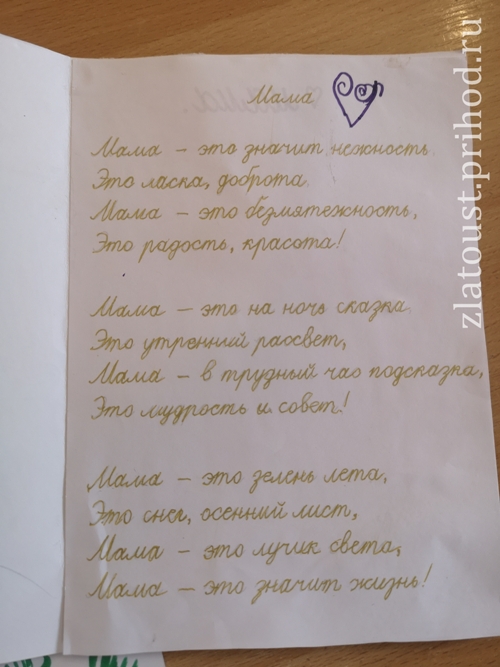 Мама
Мама – это значит нежность.
Это ласка, доброта.
Мама – это безмятежность,
Это радость, красота!
Мама – это на ночь сказка.
Это утренний рассвет,
Мама – в трудный час подсказка,
Это мудрость и совет!
Мама – это зелень лета,
Это снег, осенний лист,
Мама – это лучик света,
Мама – это значит жизнь!
zlatoust.prihod.ru